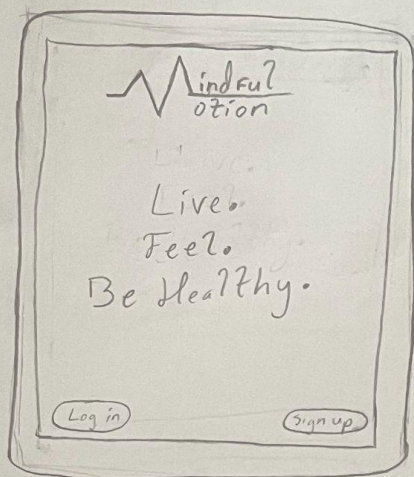 Mindful
Motion
Live.
Feel.
Be Healthy.
Log in
Sign up